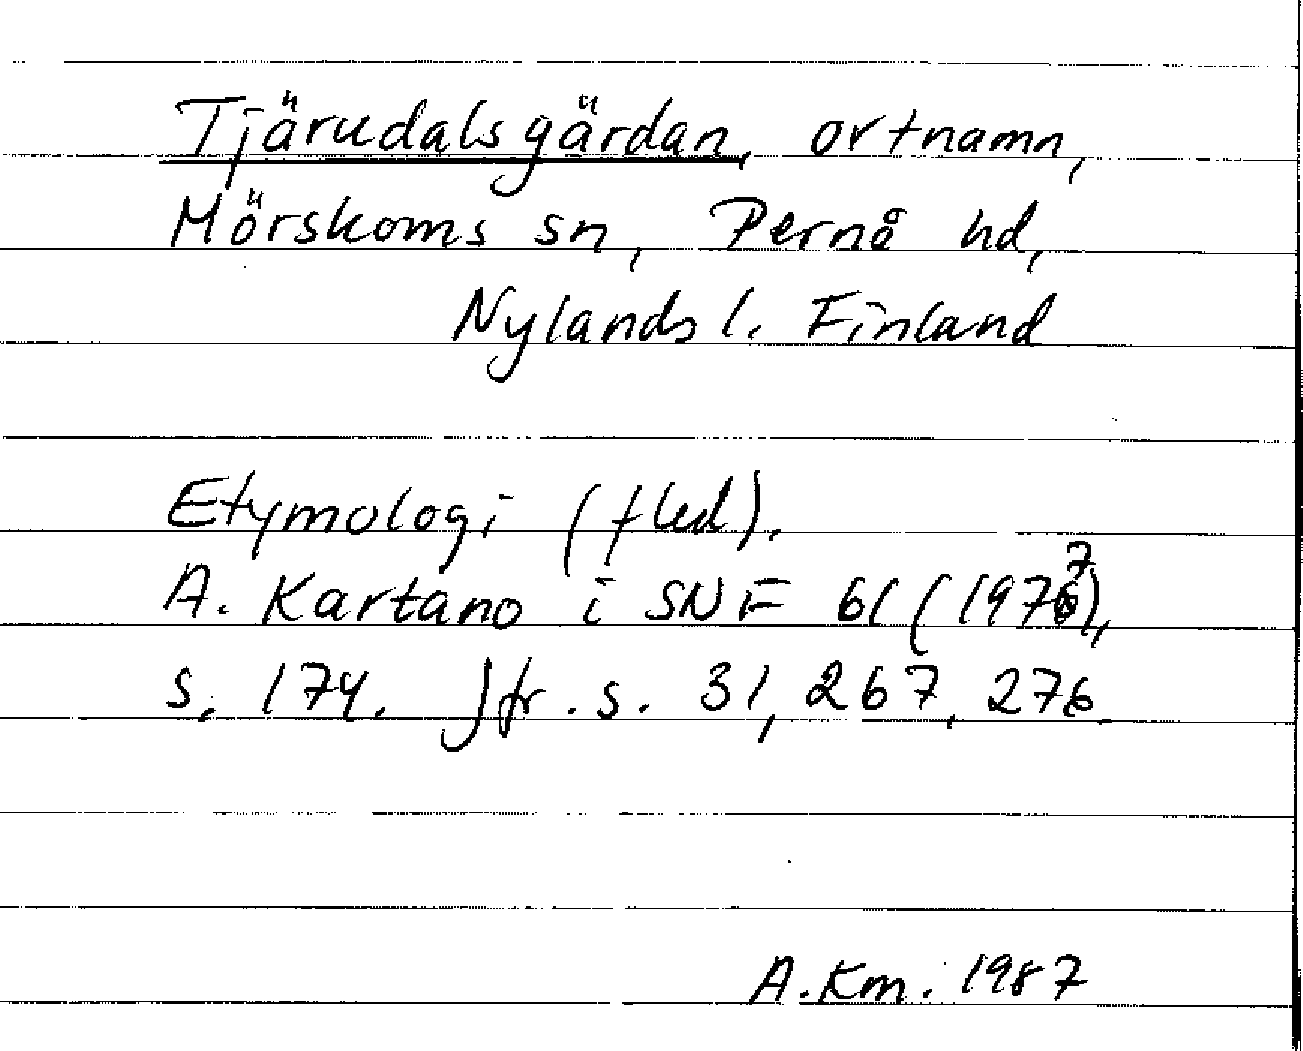 Tjärudalsgärdan, ortnamn,
Mörskoms sn, Pernå hd,
Nylands l. Finland
Etymologi (fled).
A. Kartano i SNF 61 (1977),
s. 174. Jfr. s. 31, 267, 276.
A.Km. 1987